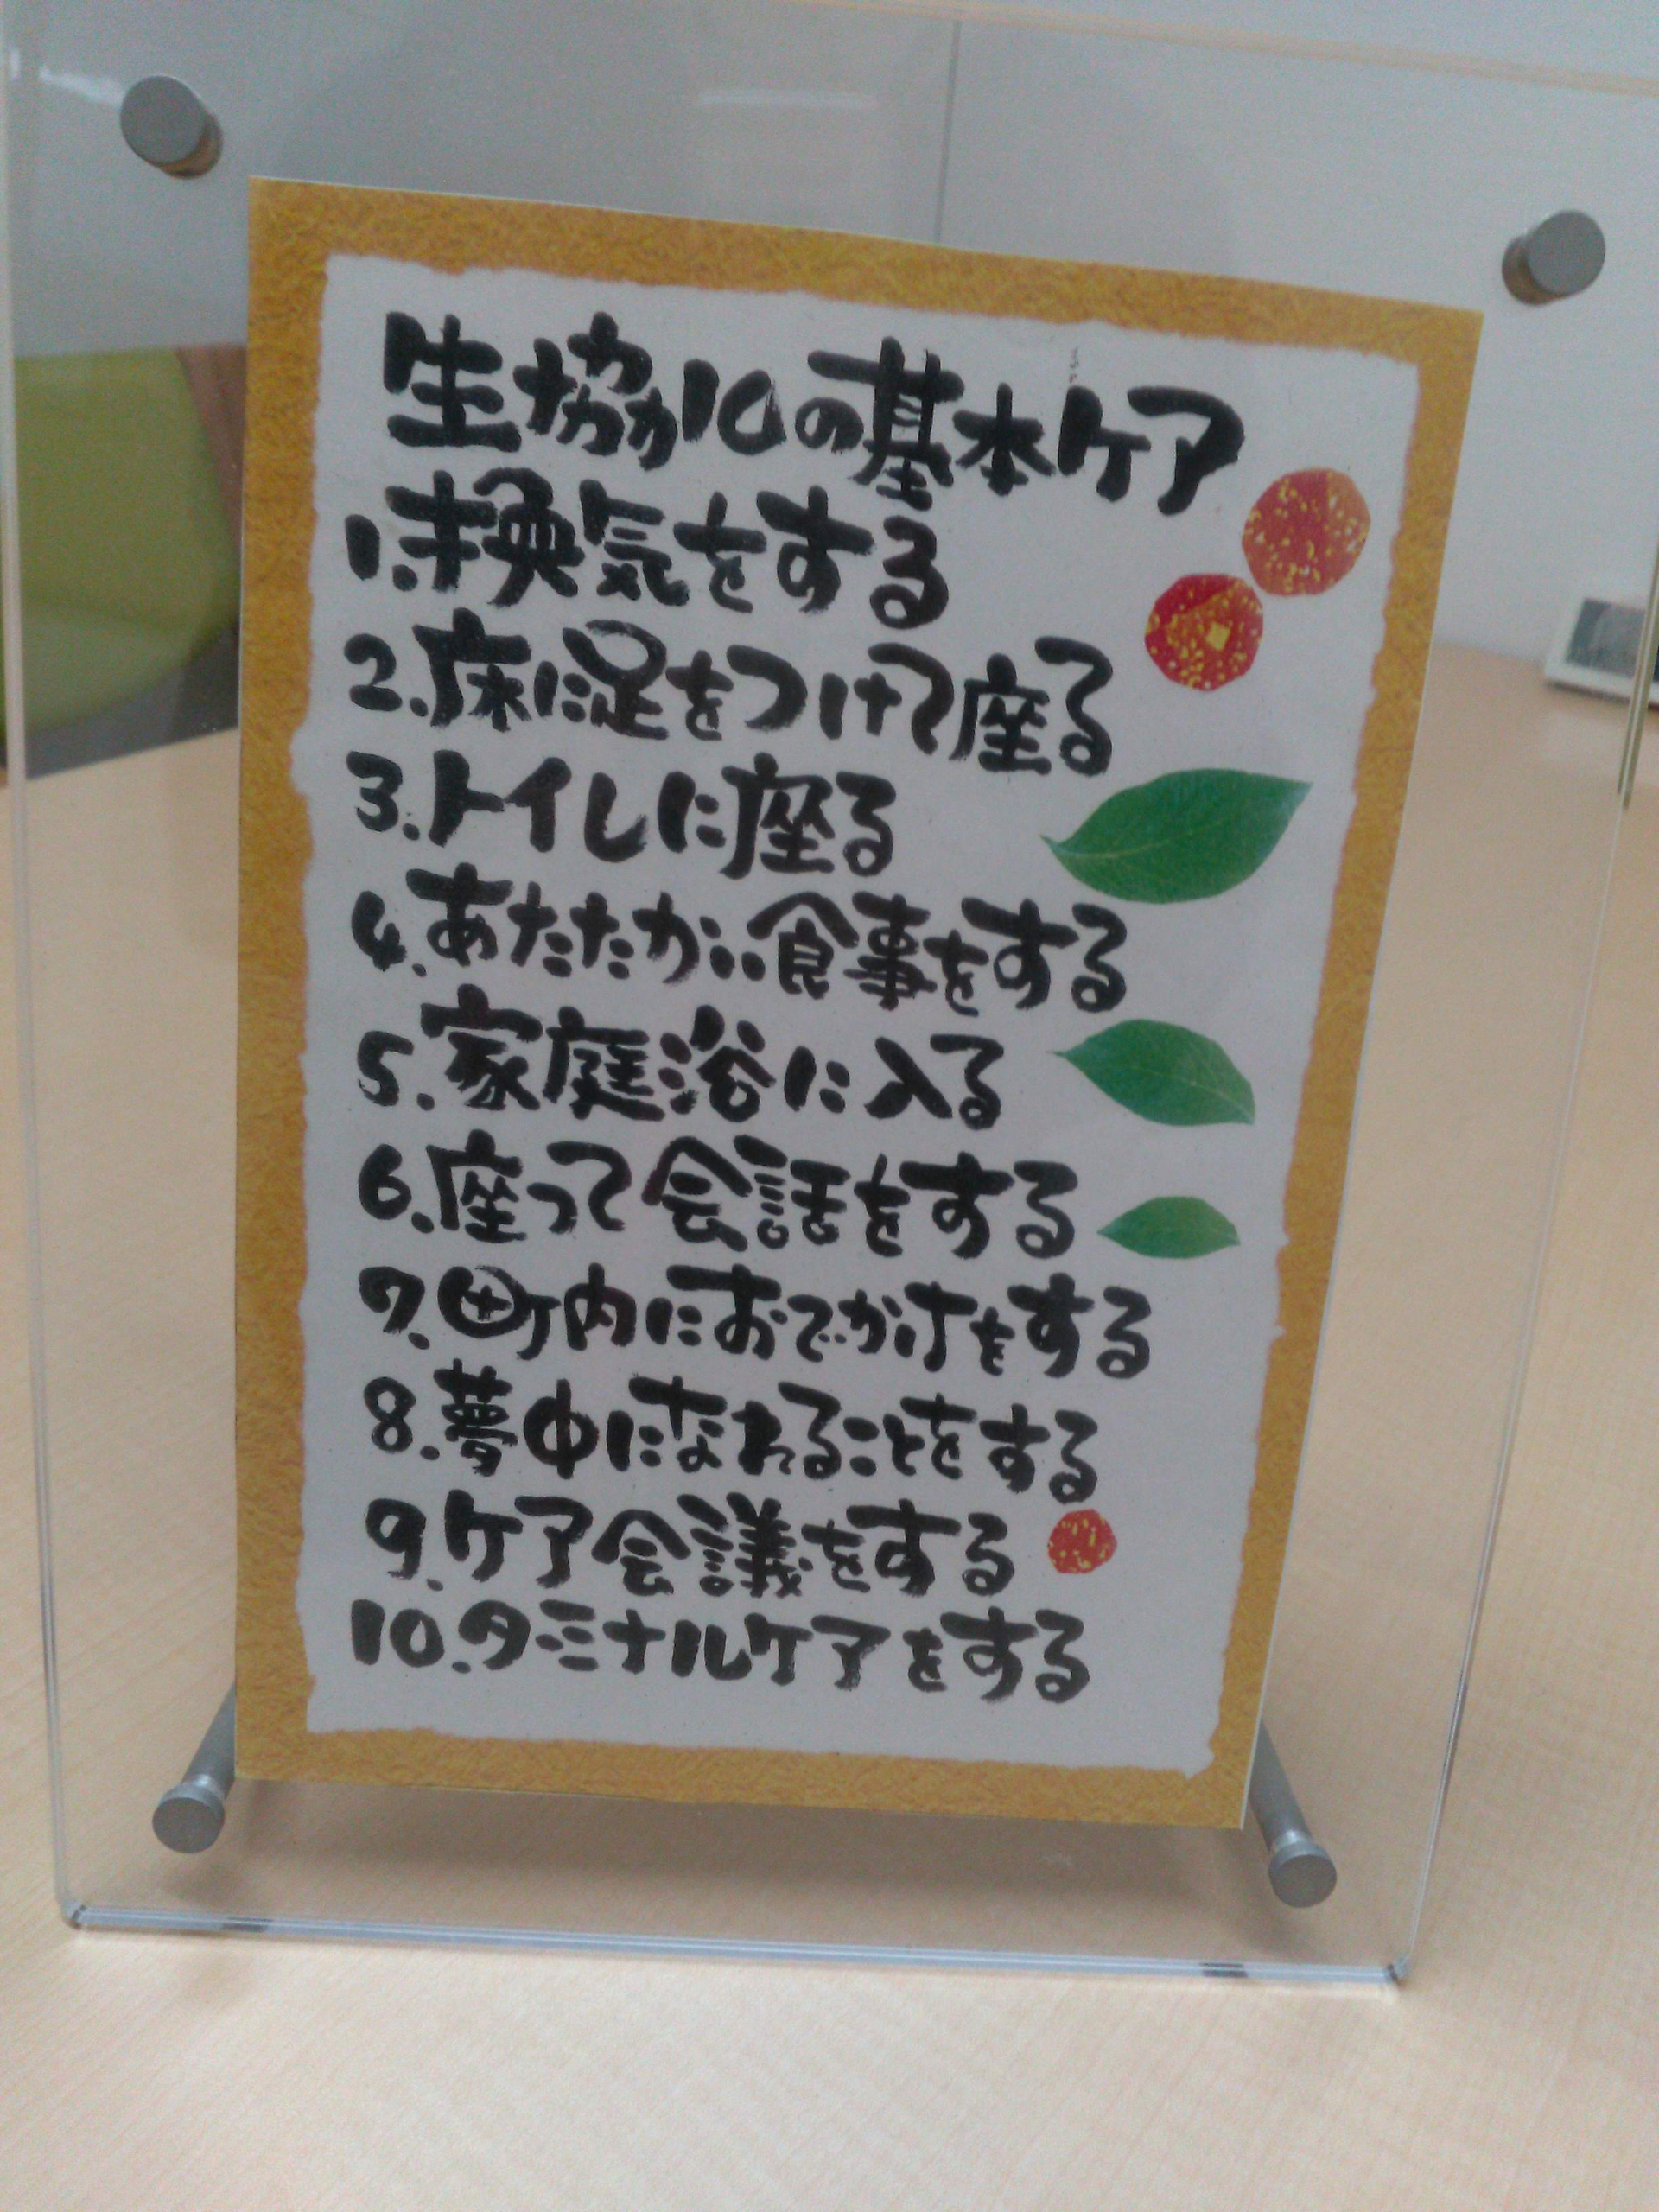 生協10の基本ケア
1.換気をする
2.床に足をつけて座る
3.トイレに座る
4.あたたかい食事をする
5.家庭浴に入る
6.座って会話をする
7.町内におでかけをする
8.夢中になれることをする
9.ケア会議をする
10.タミナルケアをする